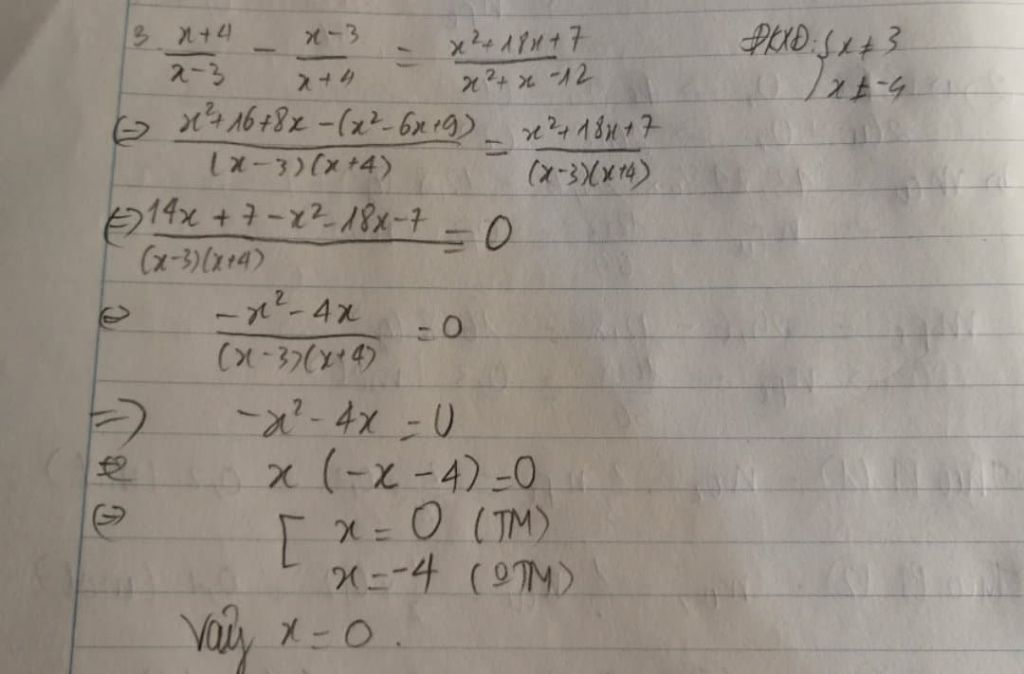 3 (x+4)/(x-3) - (x-3)/(x+4) = (x²+18x+7)/(x²+x-12) ĐKXĐ: { x ≠ 3
x ≠ -4
(=) (x²+16+8x-(x²-6x+9))/((x-3)(x+4)) = (x²+18x+7)/((x-3)(x+4))
(=) (14x+7-x²-18x-7)/((x-3)(x+4)) = 0
(=) (-x²-4x)/((x-3)(x+4)) = 0
=) -x²-4x = 0
x (-x-4) = 0
(=) [ x = 0 (TM)
x = -4 (0TM)
Vậy x = 0.